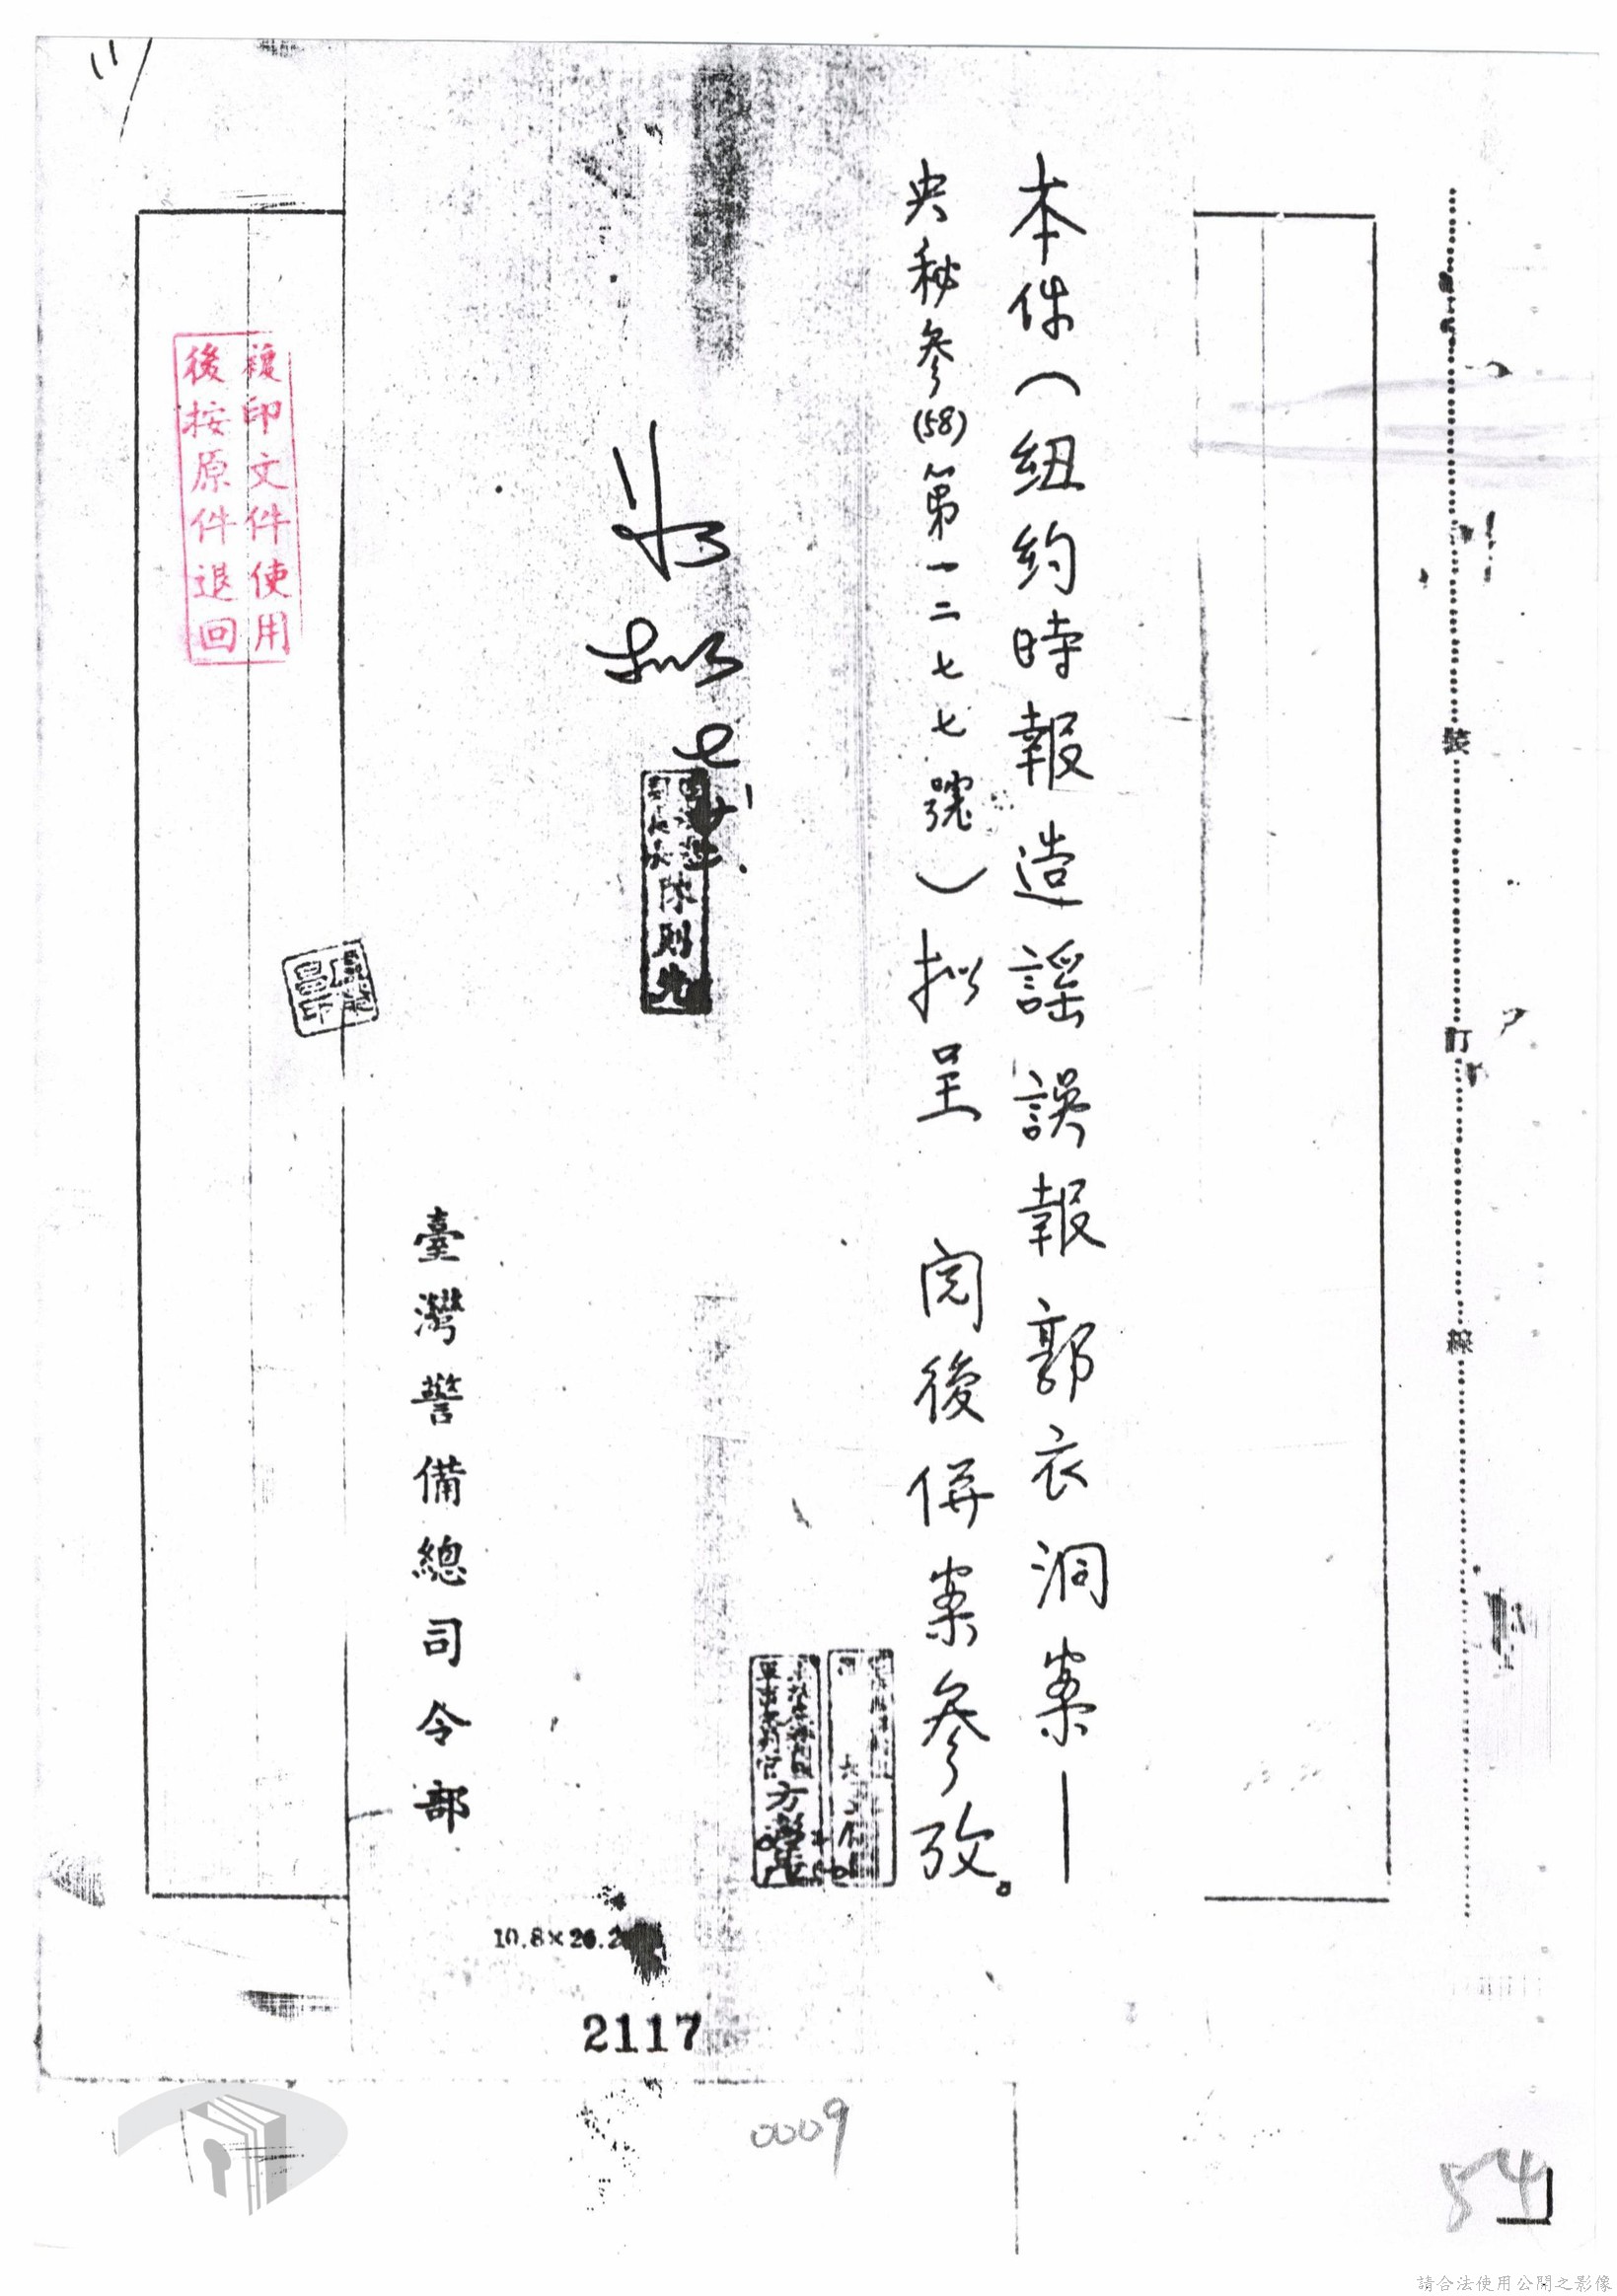 裝
訂
線
本件（紐約時報造謠誤報郭衣洞案—
央秘參(58)第一二七七號）拟呈 閱後併案參攷。
方
如拟
陳則
臺灣警備總司令部
複印文件使用
後按原件退回
10.8×26.2
2117
0009
54
請合法使用公開之影像